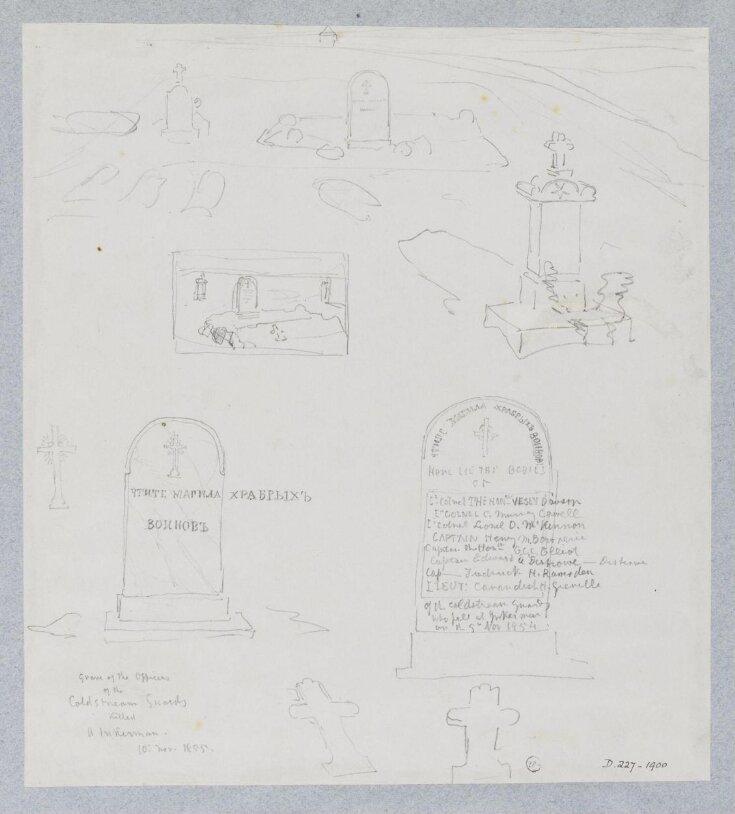 ЧТИТЕ МАГИЛА ХРАБРЫХЪ
ВОИНОВЪ
ЧТИТЕ МАГИЛА ХРАБРЫХЪ ВОИНОВ
HERE LIE THE BODIES
OF
Lt Colonel THE HONble VESEY Dawson
Lt COLONEL C. Murray Cowell
Lt Colonel Lionel D. McKinnon
CAPTAIN Henry M. Bouverie
Captain the Honble G.C.C. Elliot
Captain Edward A Disbrowe — Disbrowe
Cap— Frederick H. Ramsden
LIEUT: Cavendish H. Greville
of the Coldstream Guards
who fell at Inkerman
on the 5th Nov 1854
Grave of the Officers
of the
Coldstream Guards
killed
at Inkerman.
10. Nov. 1855.
D.227-1900